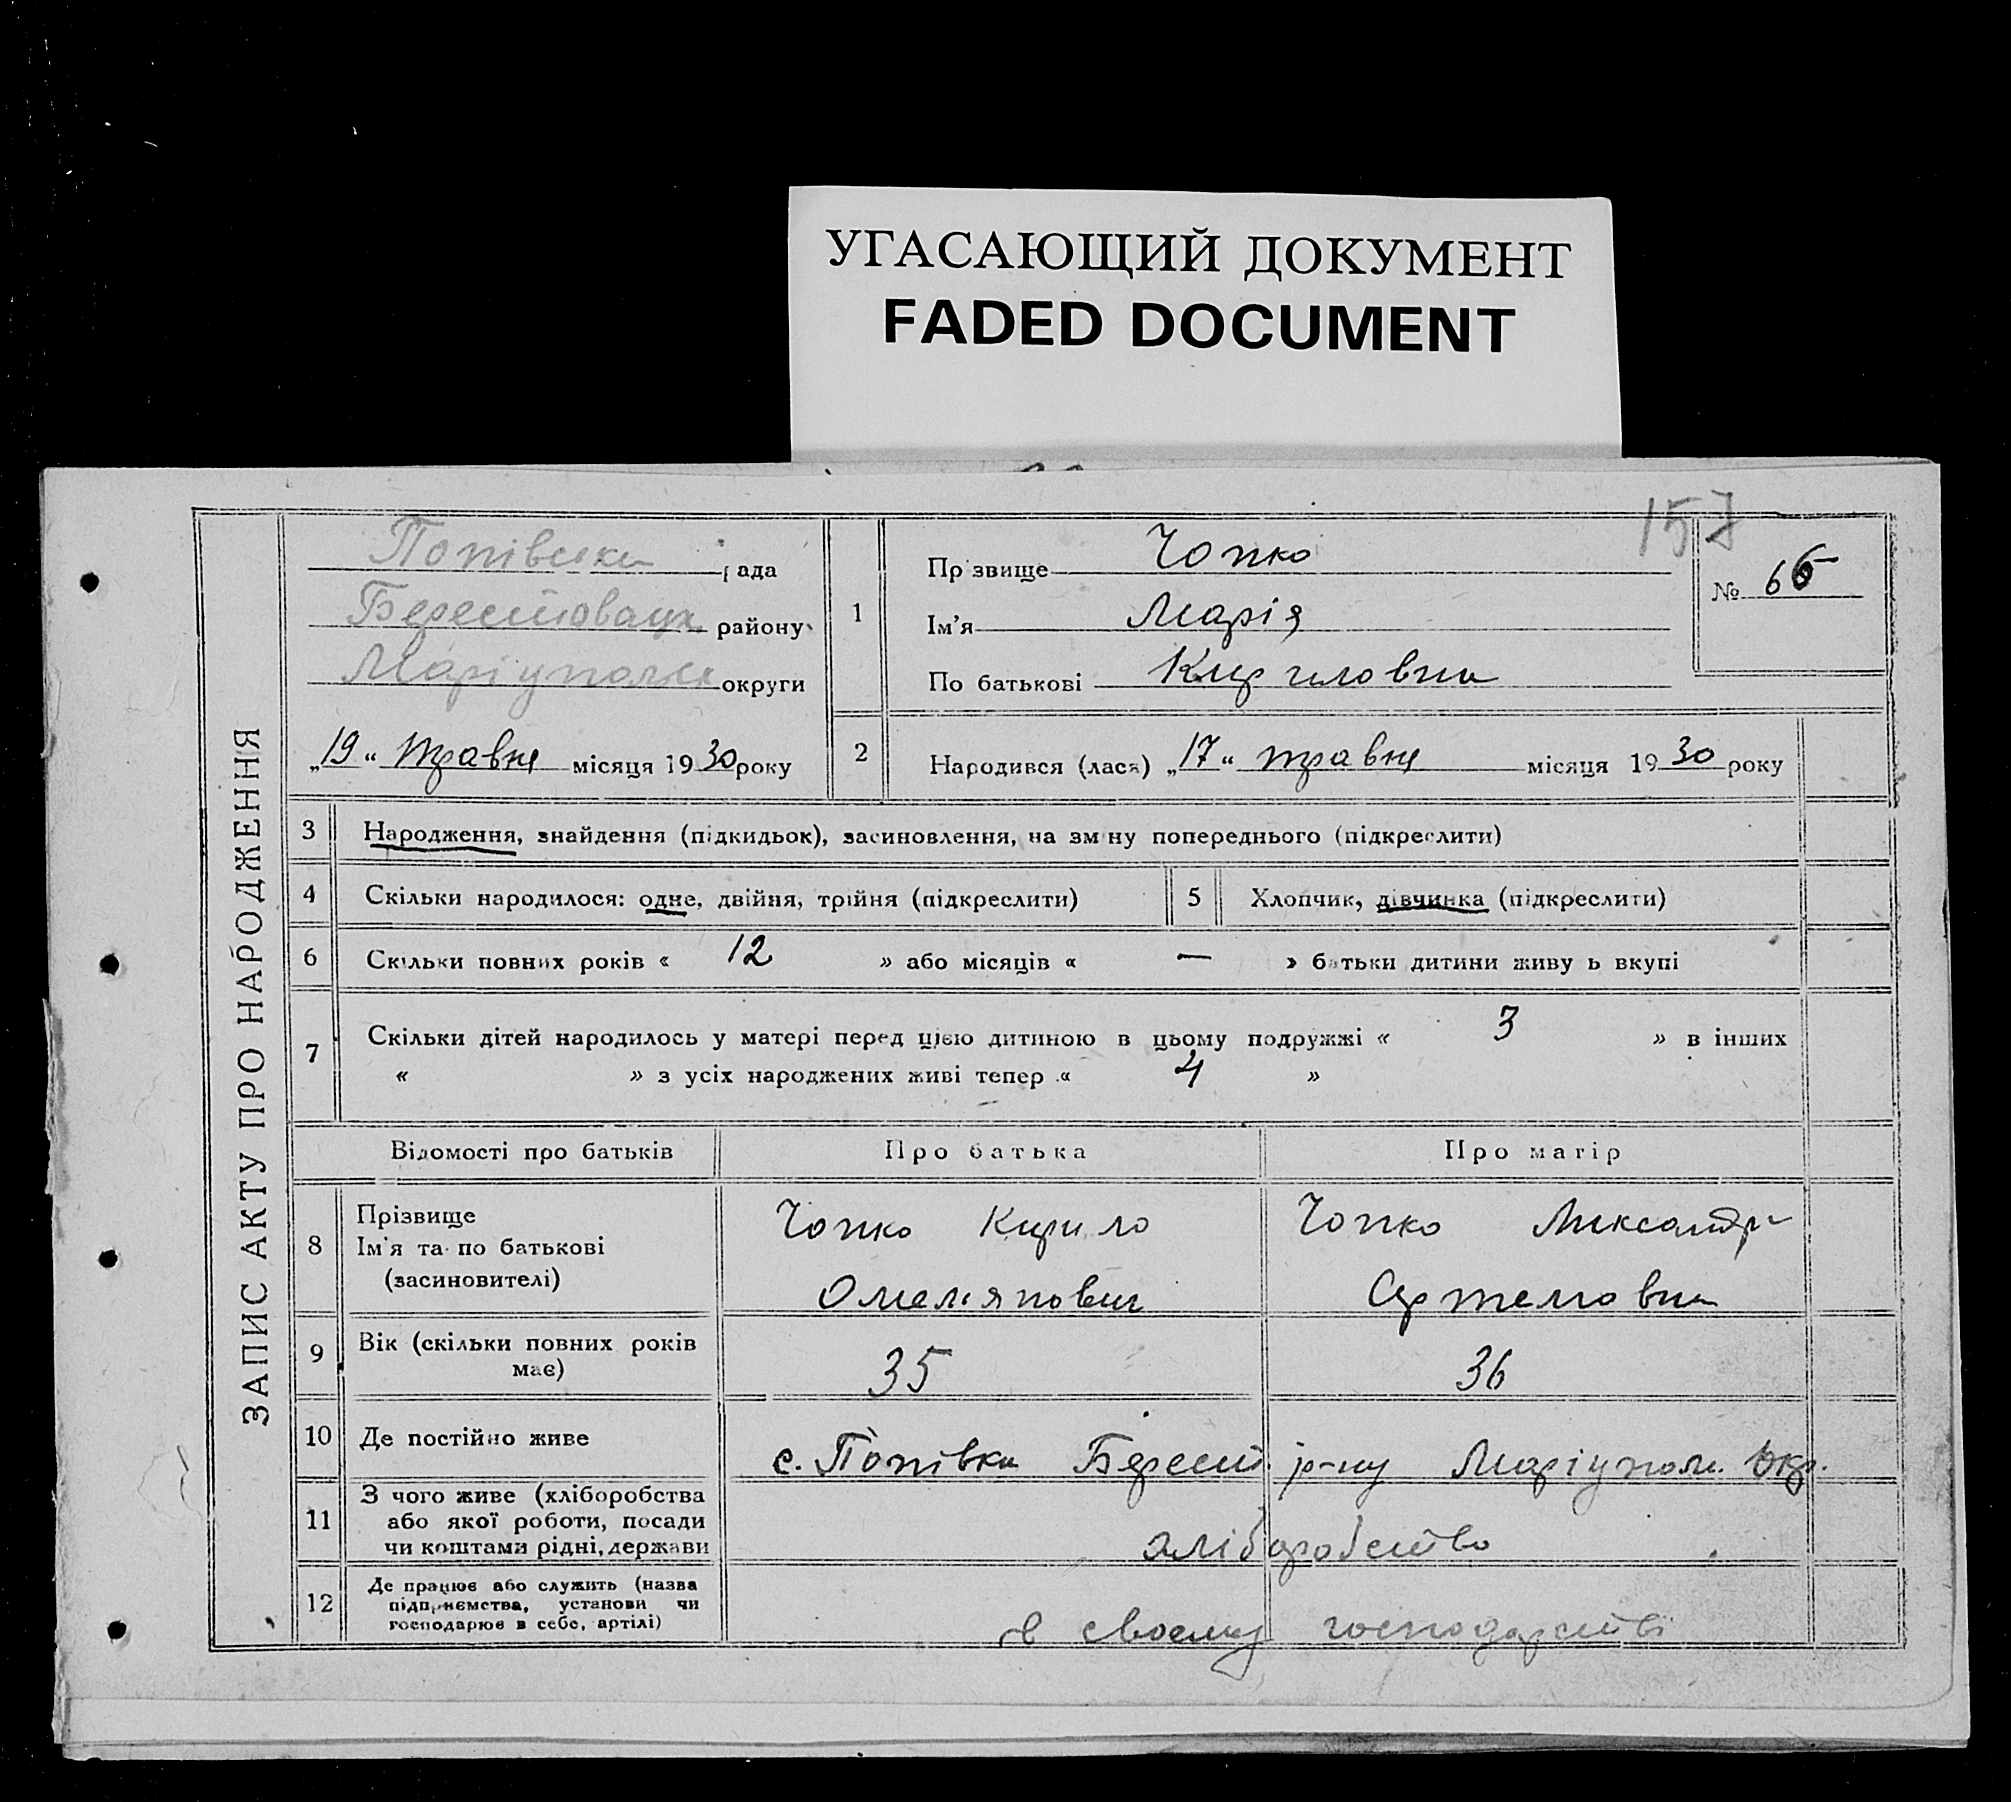 УГАСАЮЩИЙ ДОКУМЕНТ
FADED DOCUMENT
157
ЗАПИС АКТУ ПРО НАРОДЖЕННЯ
Попівска рада
Берестоваць району
Маріупольск округи
„19“ травня місяця 1930 року
1
Прізвище Чопко
Ім'я Марія
По батькові Кириловна
№ 66
2 Народився (лася) „17“ травня місяця 1930 року
3 Народження, знайдення (підкидьок), засиновлення, на зміну попереднього (підкреслити)
4 Скільки народилося: одне, двійня, трійня (підкреслити)
5 Хлопчик, дівчинка (підкреслити)
6 Скільки повних років « 12 » або місяців « — » батьки дитини живуть вкупі
7 Скільки дітей народилось у матері перед цією дитиною в цьому подружжі « 3 » в інших
« » з усіх народжених живі тепер « 4 »
Відомості про батьків Про батька Про матір
8 Прізвище
Ім'я та по батькові
(засиновителі)
Чопко Кирило
Омелянович
Чопко Александр
Артемовна
9 Вік (скільки повних років
має)
35 36
10 Де постійно живе
с. Попівка Берест. р-ну Маріупол. Окр.
11 З чого живе (хліборобства
або якої роботи, посади
чи коштами рідні, держави
хліборобство
12 Де працює або служить (назва
підприємства, установи чи
господарює в себе, артілі)
в своєму господарстві